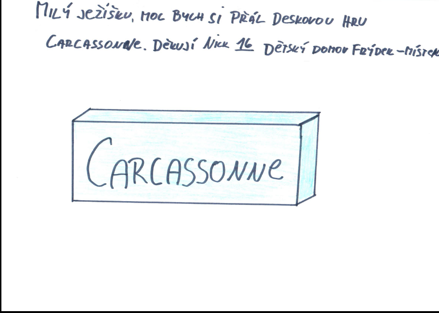 Milý Ježíšku, moc bych si přál deskovou hru
Carcassonne. Děkuji Nick 16 Dětský domov Frýdek-Místek
Carcassonne